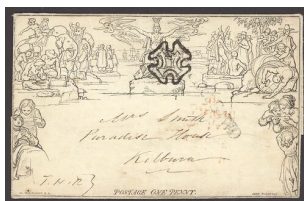 Mrs Smith
Paradise House
Kilburn
J. H. P.
POSTAGE ONE PENNY.